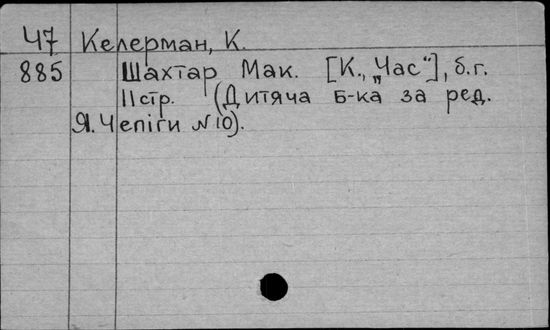 Ч7 Келерман, К.
885 Шахтар Мак. [К., „Час“], б.г.
11 стр. (Дитяча Б-ка за ред.
Я. Чепіги № 10).